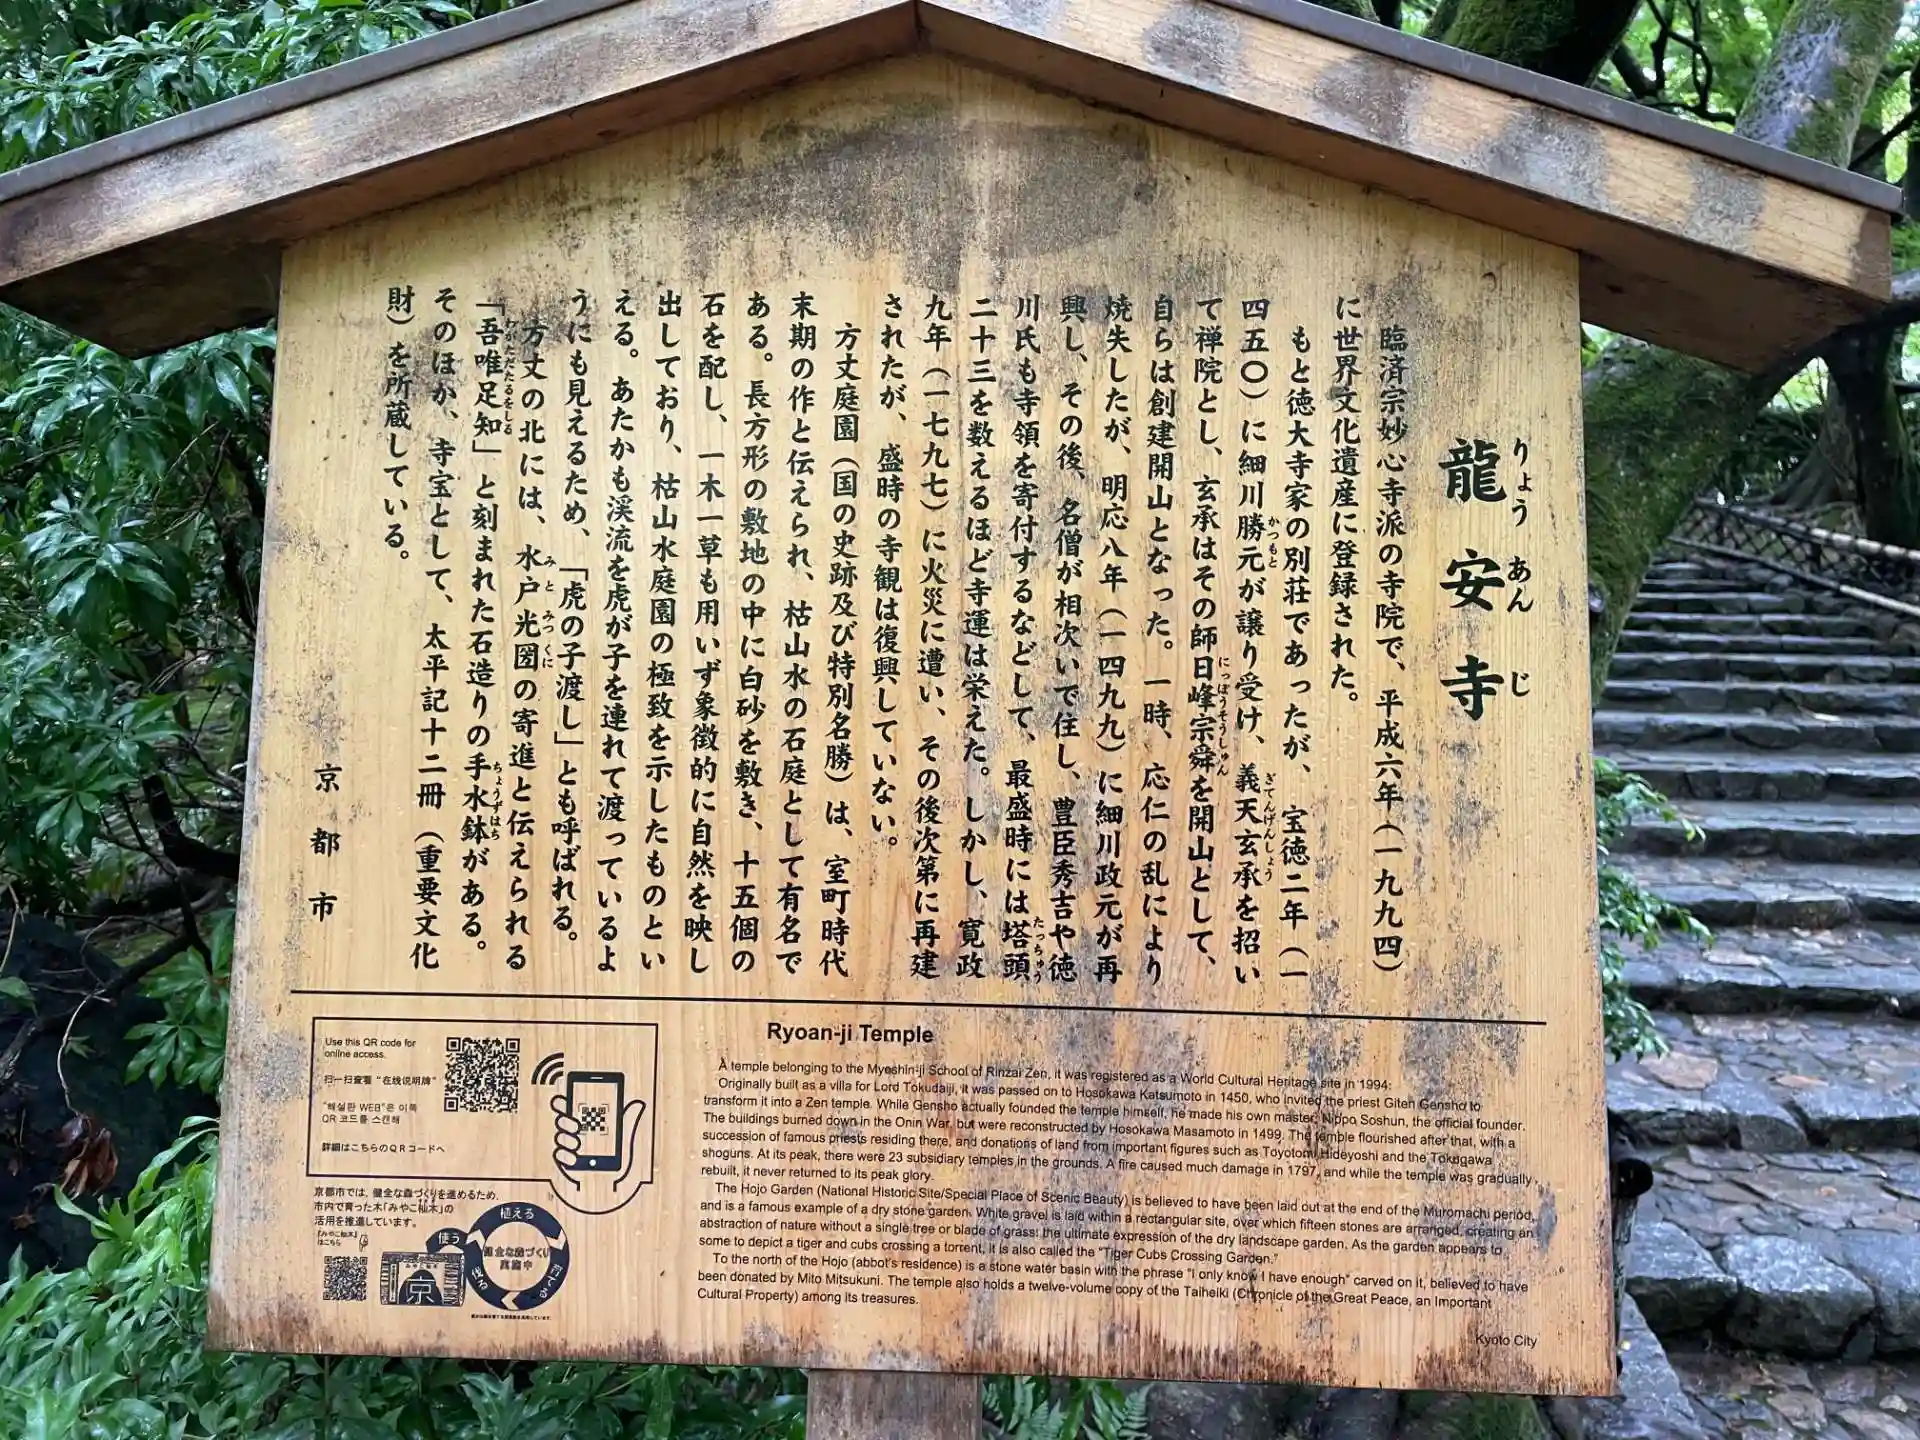 龍安寺
りょうあんじ
臨済宗妙心寺派の寺院で、平成六年(一九九四)
に世界文化遺産に登録された。
もと徳大寺家の別荘であったが、宝徳二年(一
四五〇)に細川勝元が譲り受け、義天玄承を招い
かつもと
ぎてんげんしょう
て禅院とし、玄承はその師日峰宗舜を開山として、
にっぽうそうしゅん
自らは創建開山となった。一時、応仁の乱により
焼失したが、明応八年(一四九九)に細川政元が再
興し、その後、名僧が相次いで住し、豊臣秀吉や徳
川氏も寺領を寄付するなどして、最盛時には塔頭
たっちゅう
二十三を数えるほど寺運は栄えた。しかし、寛政
九年(一七九七)に火災に遭い、その後次第に再建
されたが、盛時の寺観は復興していない。
方丈庭園(国の史跡及び特別名勝)は、室町時代
末期の作と伝えられ、枯山水の石庭として有名で
ある。長方形の敷地の中に白砂を敷き、十五個の
石を配し、一木一草も用いず象徴的に自然を映し
出しており、枯山水庭園の極致を示したものとい
える。あたかも渓流を虎が子を連れて渡っているよ
うにも見えるため、「虎の子渡し」とも呼ばれる。
方丈の北には、水戸光圀の寄進と伝えられる
みと みつくに
「吾唯足知」と刻まれた石造りの手水鉢がある。
わがただたるをしる
ちょうずはち
そのほか、寺宝として、太平記十二冊(重要文化
財)を所蔵している。
京都市
Use this QR code for
online access.
扫一扫查看“在线说明牌”
"해설판 WEB"은 이쪽
QR 코드를 스캔해
詳細はこちらのQRコードへ
京都市では、健全な森づくりを進めるため、
市内で育った木「みやこ杣木」の
活用を推進しています。
「みやこ杣木」
はこちら
植える
使う
育てる
伐る
健全な森づくり
実施中
京
Ryoan-ji Temple
A temple belonging to the Myoshin-ji School of Rinzai Zen, it was registered as a World Cultural Heritage site in 1994.
Originally built as a villa for Lord Tokudaiji, it was passed on to Hosokawa Katsumoto in 1450, who invited the priest Giten Gensho to
transform it into a Zen temple. While Gensho actually founded the temple himself, he made his own master, Nippo Soshun, the official founder.
The buildings burned down in the Onin War, but were reconstructed by Hosokawa Masamoto in 1499. The temple flourished after that, with a
succession of famous priests residing there, and donations of land from important figures such as Toyotomi Hideyoshi and the Tokugawa
shoguns. At its peak, there were 23 subsidiary temples in the grounds. A fire caused much damage in 1797, and while the temple was gradually
rebuilt, it never returned to its peak glory.
The Hojo Garden (National Historic Site/Special Place of Scenic Beauty) is believed to have been laid out at the end of the Muromachi period,
and is a famous example of a dry stone garden. White gravel is laid within a rectangular site, over which fifteen stones are arranged, creating an
abstraction of nature without a single tree or blade of grass: the ultimate expression of the dry landscape garden. As the garden appears to
some to depict a tiger and cubs crossing a torrent, it is also called the "Tiger Cubs Crossing Garden."
To the north of the Hojo (abbot's residence) is a stone water basin with the phrase "I only know I have enough" carved on it, believed to have
been donated by Mito Mitsukuni. The temple also holds a twelve-volume copy of the Taiheiki (Chronicle of the Great Peace, an Important
Cultural Property) among its treasures.
Kyoto City